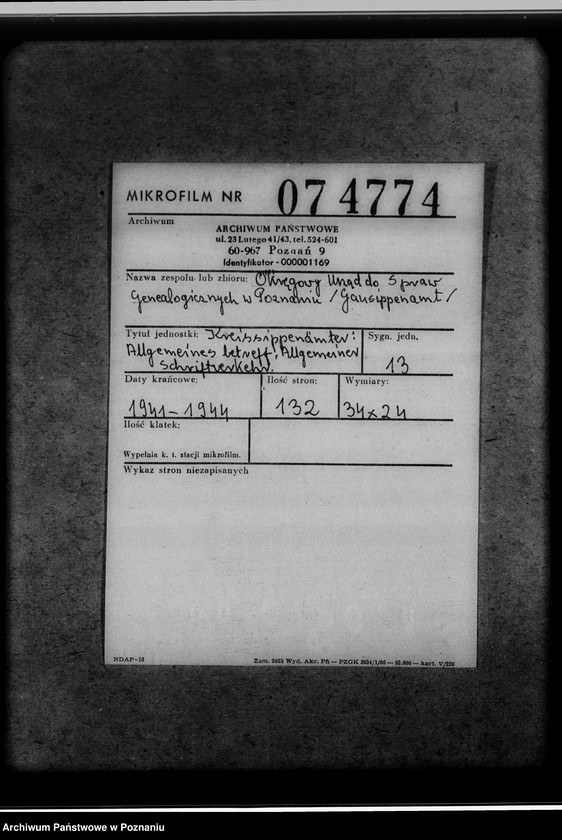 MIKROFILM NR 074774
Archiwum
ARCHIWUM PAŃSTWOWE
ul. 23 Lutego 41/43, tel. 524-601
60-967 Poznań 9
Identyfikator - 000001169
Nazwa zespołu lub zbioru: Okręgowy Urząd do Spraw
Genealogicznych w Poznaniu /Gausippenamt/
Tytuł jednostki: Kreissippenämter:
Allgemeines betreff, Allgemeiner
Schriftverkehr.
Sygn. jedn.
13
Daty krańcowe:
1941-1944
Ilość stron:
132
Wymiary:
34x24
Ilość klatek:
Wypełnia k. t. stacji mikrofilm.
Wykaz stron niezapisanych
NDAP-10
Zam. 2625 Wyd. Akc. Pń — PZGK 2034/1/86 — 93.000 — kart. V/220
Archiwum Państwowe w Poznaniu